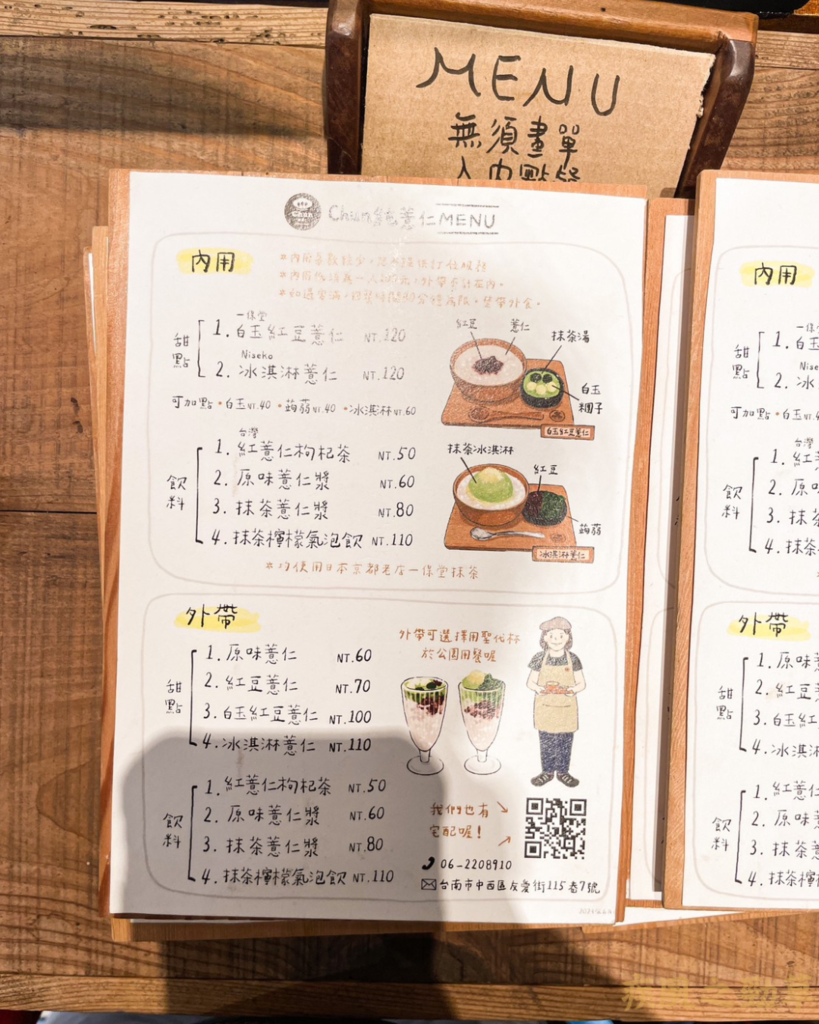 MENU
無須畫單
入內點餐
Chun
Chun純薏仁MENU
內用
一保堂
甜點
1. 白玉紅豆薏仁 NT.120
Niseko
2. 冰淇淋薏仁 NT.120
可加點 • 白玉NT.40 • 蒟蒻NT.40 • 冰淇淋NT.60
紅豆
薏仁
抹茶湯
白玉糰子
白玉紅豆薏仁
飲料
台灣
1. 紅薏仁枸杞茶 NT.50
2. 原味薏仁漿 NT.60
3. 抹茶薏仁漿 NT.80
4. 抹茶檸檬氣泡飲 NT.110
抹茶冰淇淋
紅豆
蒟蒻
冰淇淋薏仁
*均使用日本京都老店一保堂抹茶
外帶
甜點
1. 原味薏仁 NT.60
2. 紅豆薏仁 NT.70
3. 白玉紅豆薏仁 NT.100
4. 冰淇淋薏仁 NT.110
外帶可選擇用聖代杯
於公園用餐喔
飲料
1. 紅薏仁枸杞茶 NT.50
2. 原味薏仁漿 NT.60
3. 抹茶薏仁漿 NT.80
4. 抹茶檸檬氣泡飲 NT.110
我們也有
宅配喔!
06-2208910
台南市中西區友愛街115巷7號
內用
一保堂
甜點
1. 白玉
2. 冰
可加點 • 白玉
台灣
飲料
1. 紅薏
2. 原味
3. 抹茶
4. 抹茶
外帶
甜點
1. 原味
2. 紅豆
3. 白玉紅
4. 冰淇淋
飲料
1. 紅薏仁
2. 原味
3. 抹茶薏
4. 抹茶檸檬